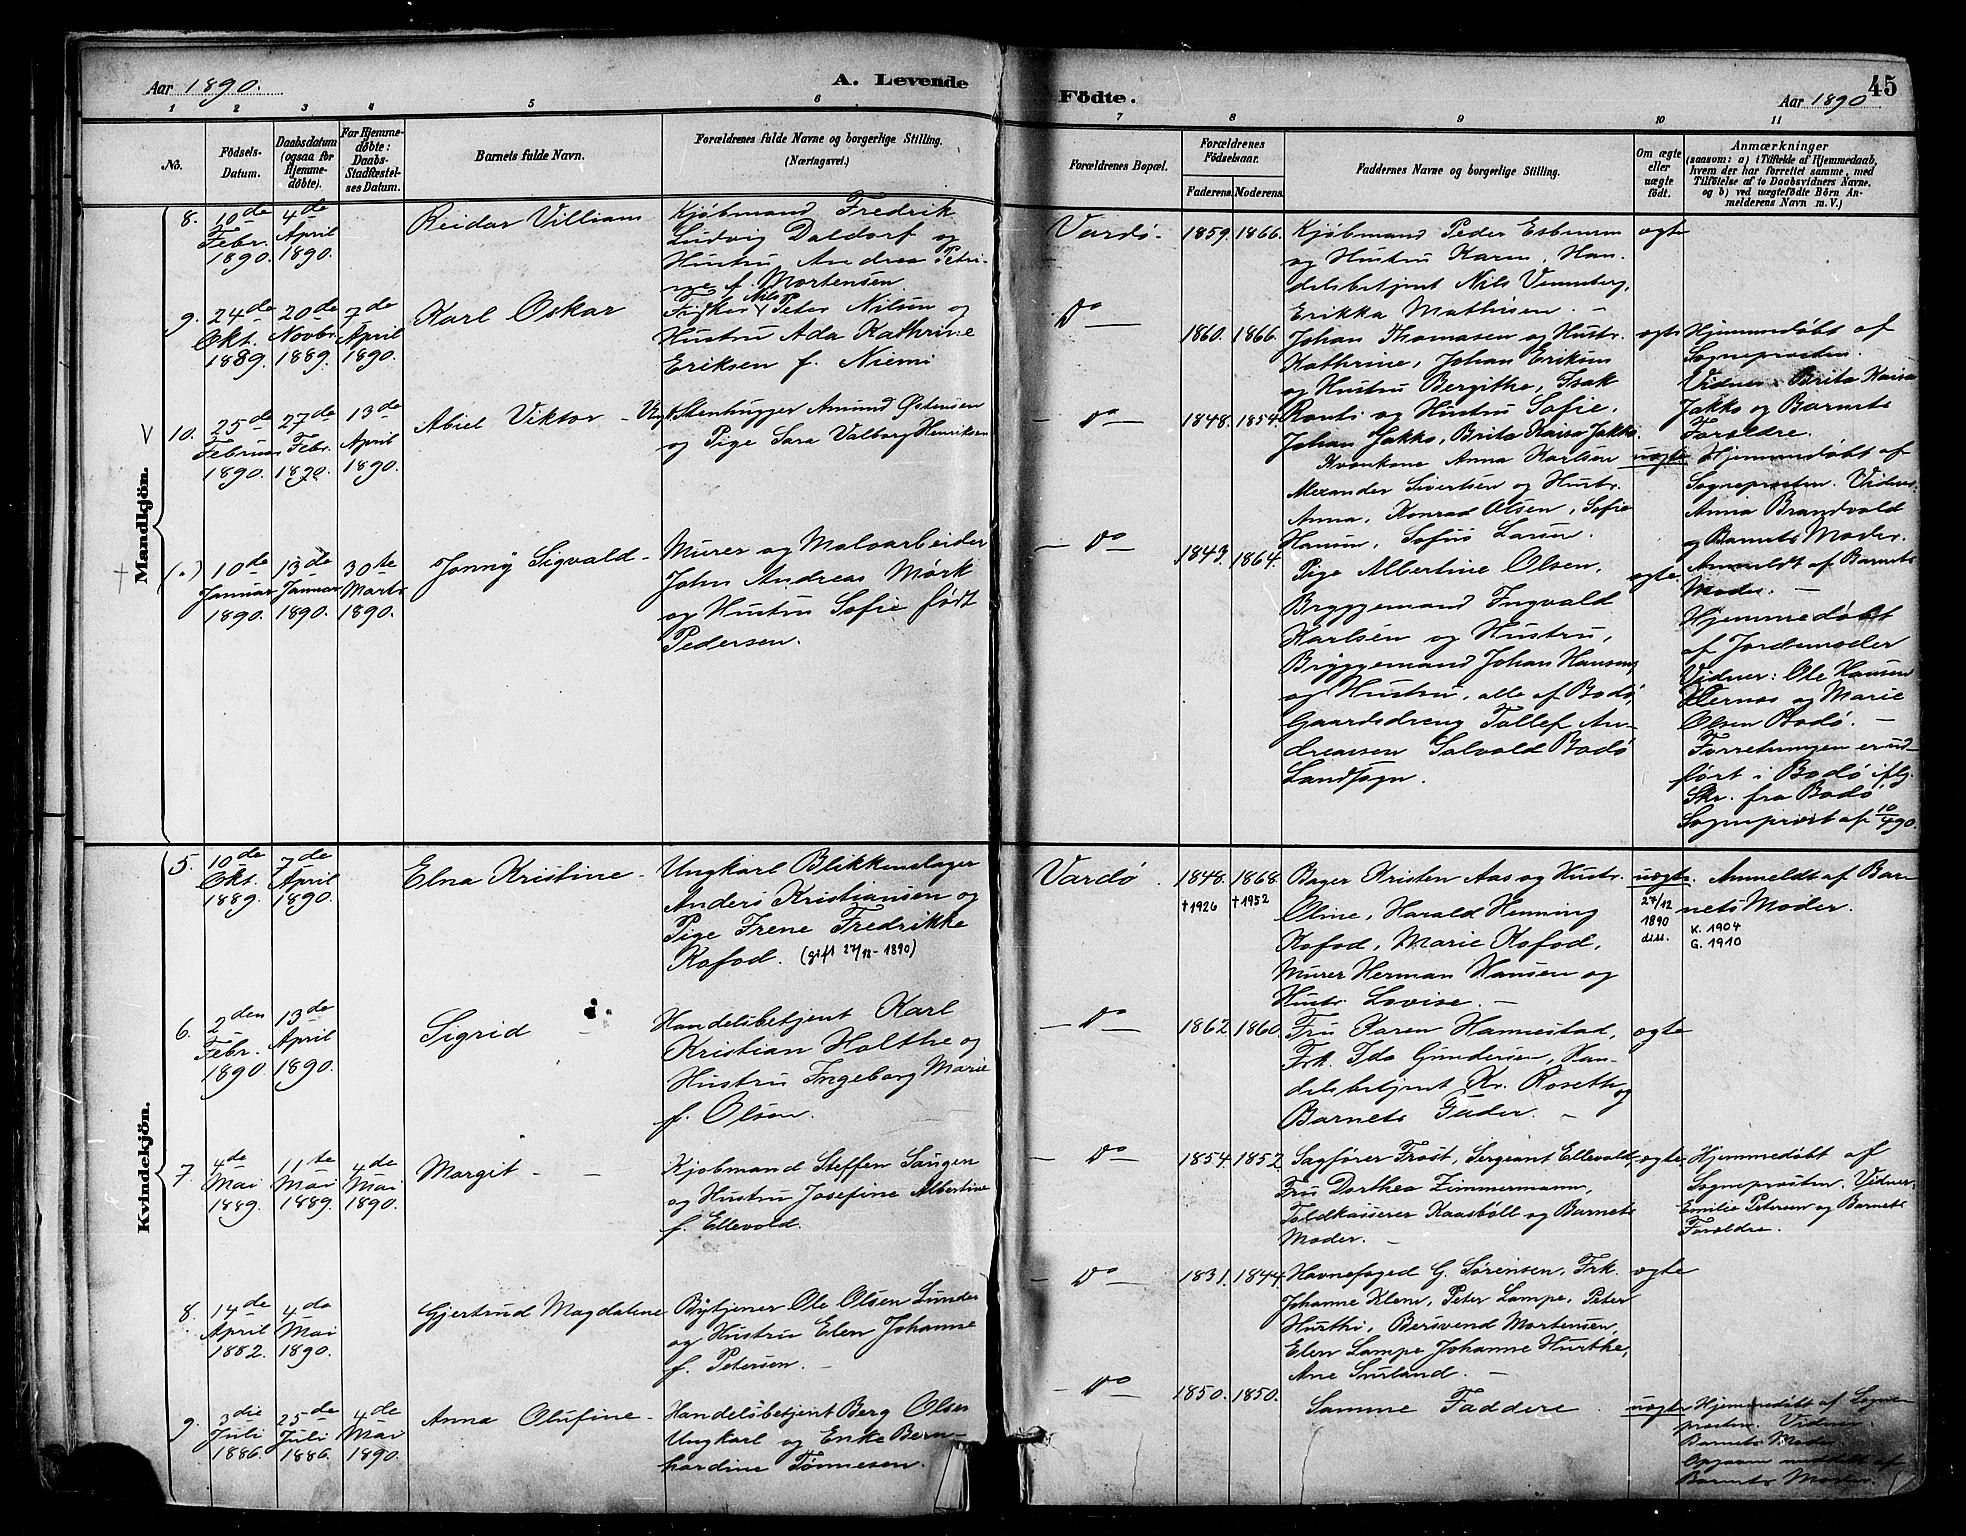 Aar 1890.
A. Levende
1 2 3 4 5 6
No.
Födsels-Datum.
Daabsdatum (ogsaa for Hjemmedøbte).
For Hjemmedøbte: Daabs-Stadfæstelses Datum.
Barnets fulde Navn.
Forældrenes fulde Navne og borgerlige Stilling.
(Næringsvei.)
Mandkjön.
8.
10de
Febr.
1890.
4de
April
1890.
Reidar Villiam
Kjøbmand Fredrik
Ludvig Daldorf og
Hustru Andrea Petri-
ne f. Mortensen
9.
24de
Okt.
1889.
20de
Novbr.
1889.
7de
April
1890.
Karl Oskar
Fisker Nils Peter Nilsen og
Hustru Ada Kathrine
Eriksen f. Niemi
V
10.
25de
Februar
1890.
27de
Febr.
1890.
13de
April
1890.
Abiel Viktor -
Ungk. Stenhugger Amund Østensen
og Pige Sara Valborg Henriksen
+
(0)
10de
Januar
1890.
13de
Januar
1890.
30te
Marts
1890.
Jonny Sigvald -
Murer og Malerarbeider
John Andreas Mørk
og Hustru Sofie født
Pedersen.
Kvindekjön.
5.
10de
Okt.
1889.
7de
April
1890.
Elna Kristine -
Ungkarl Blikkenslager
Anders Kristiansen og
Pige Irene Fredrikke
Kofod. (gift 27/12-1890)
6.
2den
Febr.
1890
13de
April
1890.
Sigrid -
Handelsbetjent Karl
Kristian Holthe og
Hustru Ingeborg Marie
f. Olsen.
7.
4de
Mai
1889.
11te
Mai
1889.
4de
Mai
1890.
Margit - -
Kjøbmand Steffen Saugen
og Hustru Josefine Albertine
f. Ellevold.
8.
14de
April
1882.
4de
Mai
1890.
Gjertrud Magdalene
Bytjener Ole Olsen Lunder
og Hustru Elen Johanne
f. Petersen. -
9.
3die
Juli
1886.
25de
Juli
1886.
4de
Mai
1890.
Anna Olufine -
Handelsbetjent Berg Olsen
Ungkarl og Enke Bern-
hardine Tønnesen.
Födte.
45
Aar 1890
7 8 9 10 11
Forældrenes Bopæl.
Forældrenes Födselsaar.
Faderens. Moderens.
Faddernes Navne og borgerlige Stilling.
Om ægte eller uægte født.
Anmærkninger
(saasom: a) i Tilfælde af Hjemmedaab,
hvem der har forrettet samme, med
Tilföielse af to Daabsvidners Navne,
og b) ved uægtefödte Börn An-
melderens Navn m. V.)
Vardø.
1859. 1866.
Kjøbmand Peder Esbensen
og Hustru Karen, Han-
delsbetjent Nils Venneberg,
Erikka Mathisen. -
ægte
Do
1860. 1866.
Johan Thomasen og Hustr.
Kathrine, Johan Eriksen
og Hustru Bergithe, Isak
Ranti og Hustru Sofie,
Johan Jakko, Brita Kaisa Jakko.
ægte
Hjemmedøbt af
Sogneprosten.
Vidner Brita Kaisa
Jakko og Barnets
Forældre.
- Do -
1848. 1854.
Kvenkone Anna Karlsen
Alexander Sivertsen og Hustr.
Anna, Konrad Olsen, Sofie
Hansen, Sofus Larsen.
uægte
Hjemmedøbt af
Sogneprosten. Vidner:
Anna Brandvold
og Barnets Moder.
Anmeldt af Barnets
Moder. -
- Do -
1843. 1864.
Pige Albertine Olsen,
Bryggemand Ingvald
Karlsen og Hustru,
Bryggemand Johan Hansen
og Hustru, alle af Bodø,
Gaardsdreng Tollef An-
dreassen Salvold Bodø
Landsogn.
ægte
Hjemmedøbt
af Jordemoder
Vidner: Ole Hansen
Hernæs og Marie
Olsen Bodø. -
Forretningen er ud-
ført i Bodø iflg.
Skr. fra Bodø
Sogneprest af 10/4 90.
Vardø.
1848. 1868.
†1926 †1952
Bager Kristen Aas og Hustr.
Oline, Harald Henning
Kofod, Marie Kofod,
Murer Herman Hansen og
Hustr. Lovise. -
uægte.
27/12
1890
diss.
Anmeldt af Bar-
nets Moder.
K. 1904
G. 1910
- Do -
1862 1860.
Fru Karen Hannestad,
Frk. Ida Gundersen, Han-
delsbetjent Kr. Roseth og
Barnets Fader. -
ægte
- Do -
1854. 1852
Sagfører Frost, Sergeant Ellevold,
Fru Dorthea Zimmermann,
Toldkasserer Kaasbøll og Barnets
Moder. -
ægte
Hjemmedøbt af
Sogneprosten. Vidner:
Emilie Petersen og Barnets
Forældre.
- Do -
1831. 1844.
Havnefoged G. Sørensen, Frk.
Johanne Klem, Peter Lampe, Peter
Hurthi, Bersvend Mortensen,
Elen Lampe, Johanne Hurthe,
Ane Surland. -
ægte
- Do -
1850. 1850.
Samme Faddere.
uægte
Hjemmedøbt af Sogne-
prosten. Vidner:
Barnets Moder.
Opgaven meddelt af
Barnets Moder.